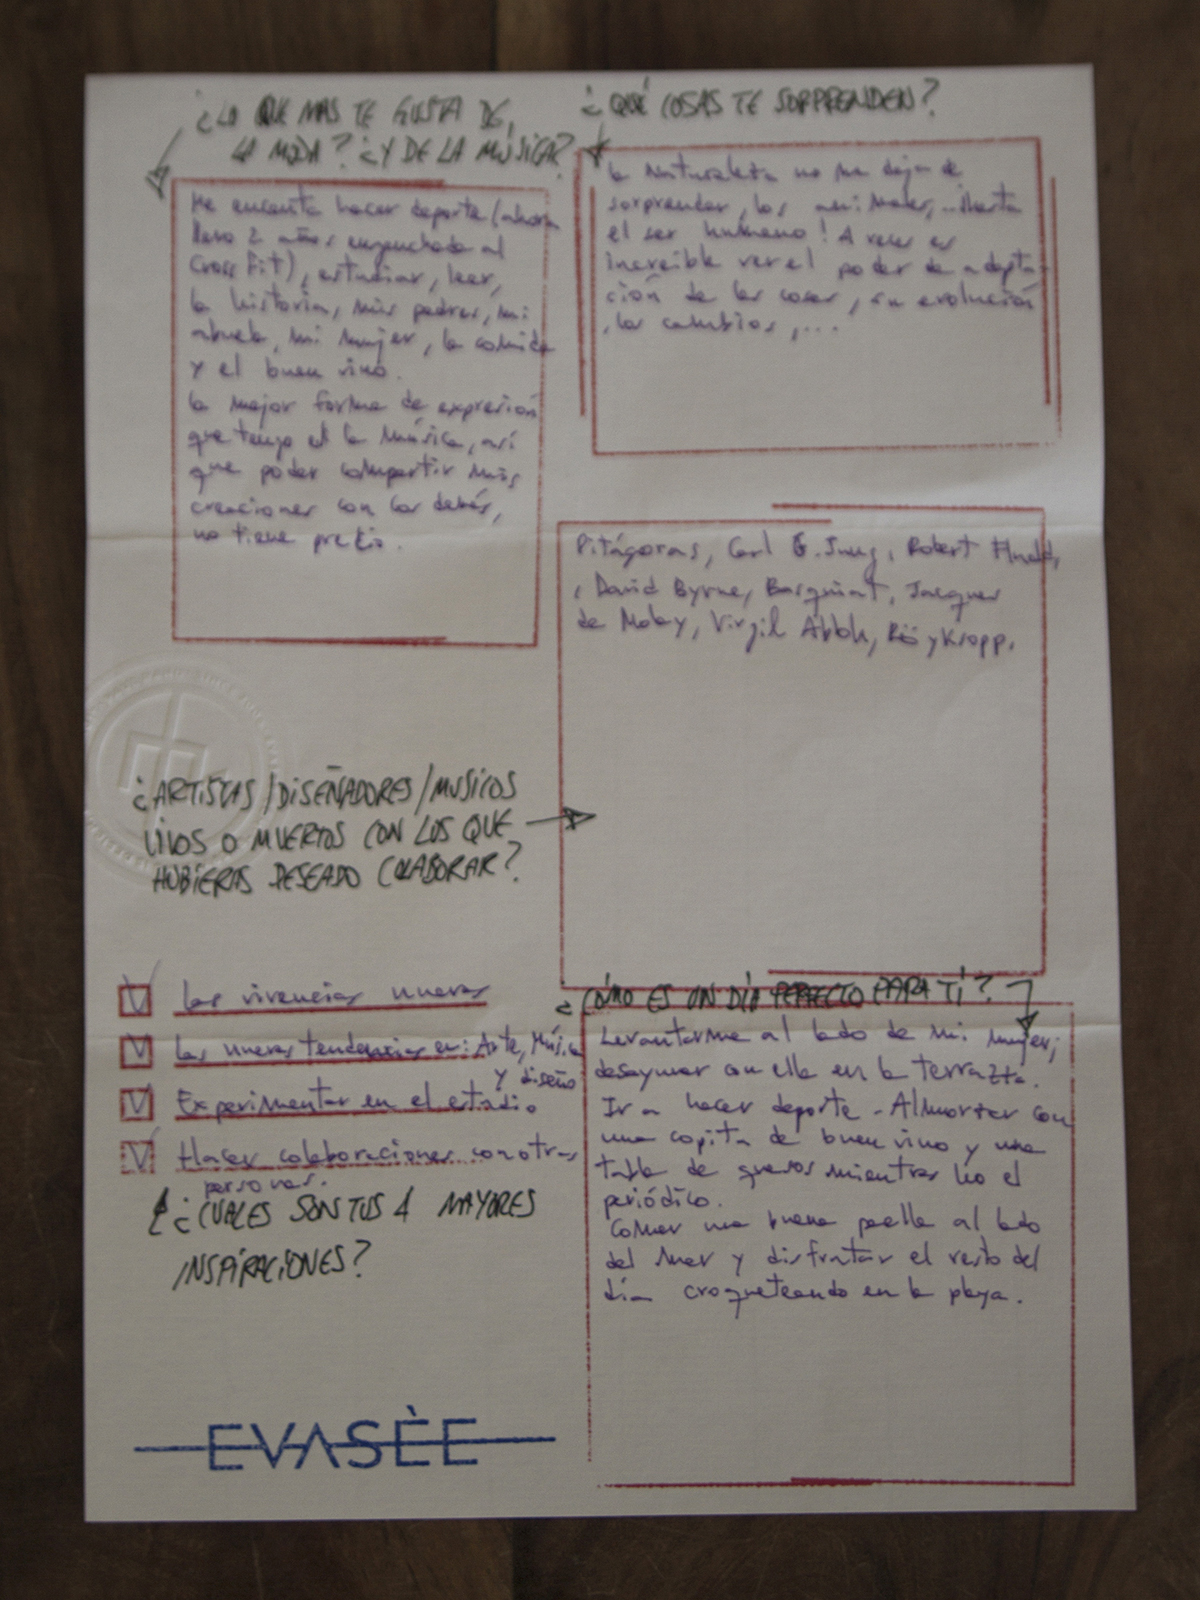 ¿LO QUE MAS TE GUSTA DE
LA MODA? ¿Y DE LA MÚSICA?
Me encanta hacer deporte (ahora
llevo 2 años enganchado al
Cross Fit), estudiar, leer,
la historia, mis padres, mi
abuela, mi mujer, la comida
y el buen vino.
La mejor forma de expresión
que tengo es la Música, así
que poder compartir mis
creaciones con los demás,
no tiene precio.
¿QUÉ COSAS TE SORPRENDEN?
La Naturaleza no me deja de
sorprender, los animales,...¡hasta
el ser humano! A veces es
increíble ver el poder de adapta-
ción de las cosas, su evolución
, los cambios,...
Pitágoras, Carl G. Jung, Robert Fludd,
, David Byrne, Basquiat, Jacques
de Molay, Virgil Abloh, Röyksopp.
¿ARTISTAS/DISEÑADORES/MUSICOS
VIVOS O MUERTOS CON LOS QUE
HUBIERAS DESEADO COLABORAR?
Las vivencias nuevas
Las nuevas tendencias en: Arte, Música
y diseño
Experimentar en el estudio
Hacer colaboraciones con otras
personas.
¿CUALES SON TUS 4 MAYORES
INSPIRACIONES?
¿CÓMO ES UN DÍA PERFECTO PARA TÍ?
Levantarme al lado de mi mujer,
desayunar con ella en la terrazta.
Ir a hacer deporte - Almorzar con
una copita de buen vino y una
tabla de quesos mientras leo el
periódico.
Comer una buena paella al lado
del mar y disfrutar el resto del
día croqueteando en la playa.
EVASÈE